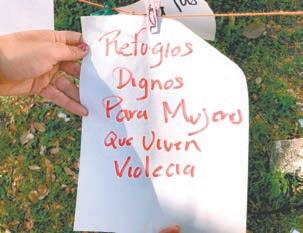 Refugios
Dignos
Para Mujeres
Que Viven
Violecia